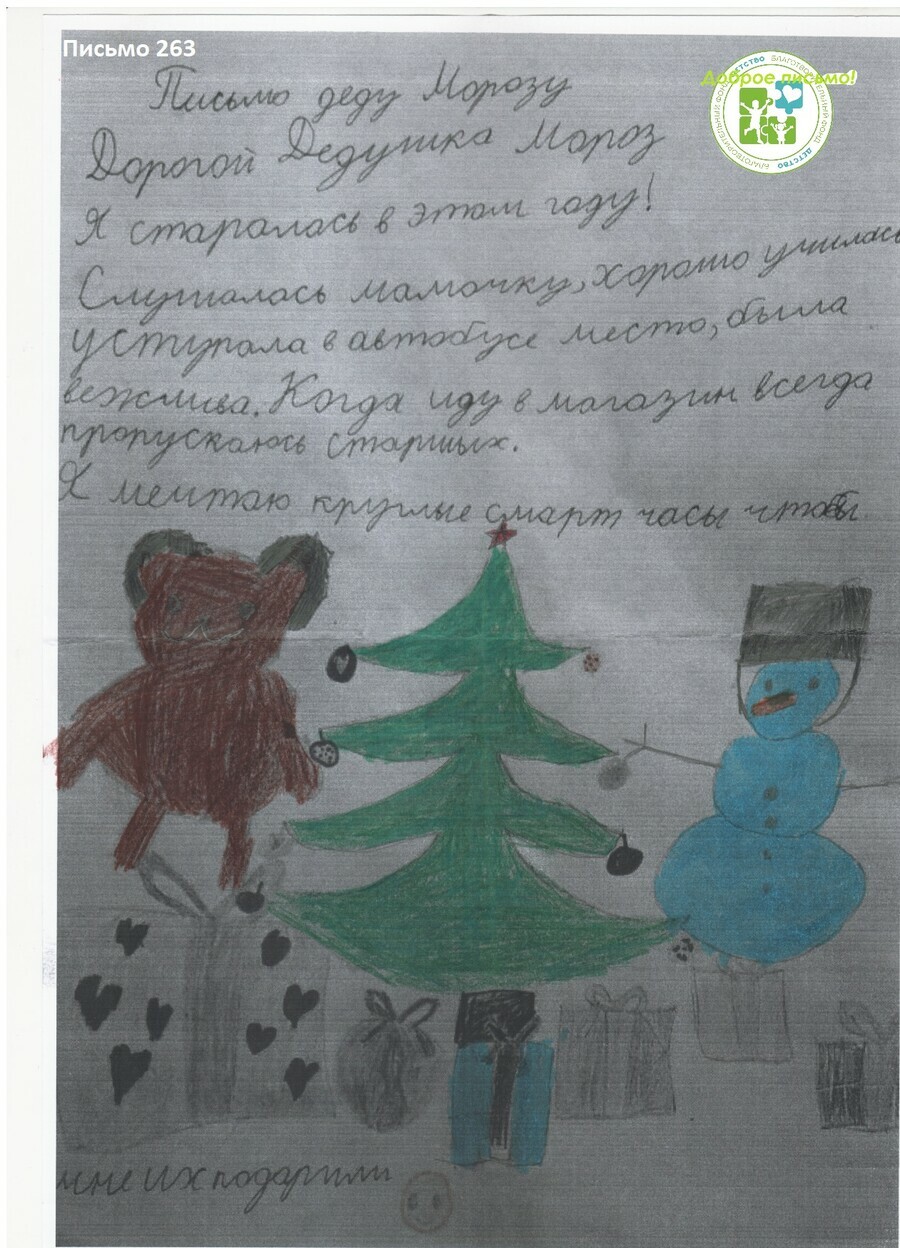 Письмо 263
Доброе письмо!
БЛАГОТВОРИТЕЛЬНЫЙ ФОНД ДЕТСТВО БЛАГОТВОРИТЕЛЬНЫЙ ФОНД ДЕТСТВО
Письмо деду Морозу
Дорогой Дедушка Мороз
Я старалась в этом году!
Слушалась мамочку, хорошо училась
уступала в автобусе место, была
вежлива. Когда иду в магазин всегда
пропускаюсь старшых.
Я мечтаю круглые смарт часы чтобы
мне их подарили